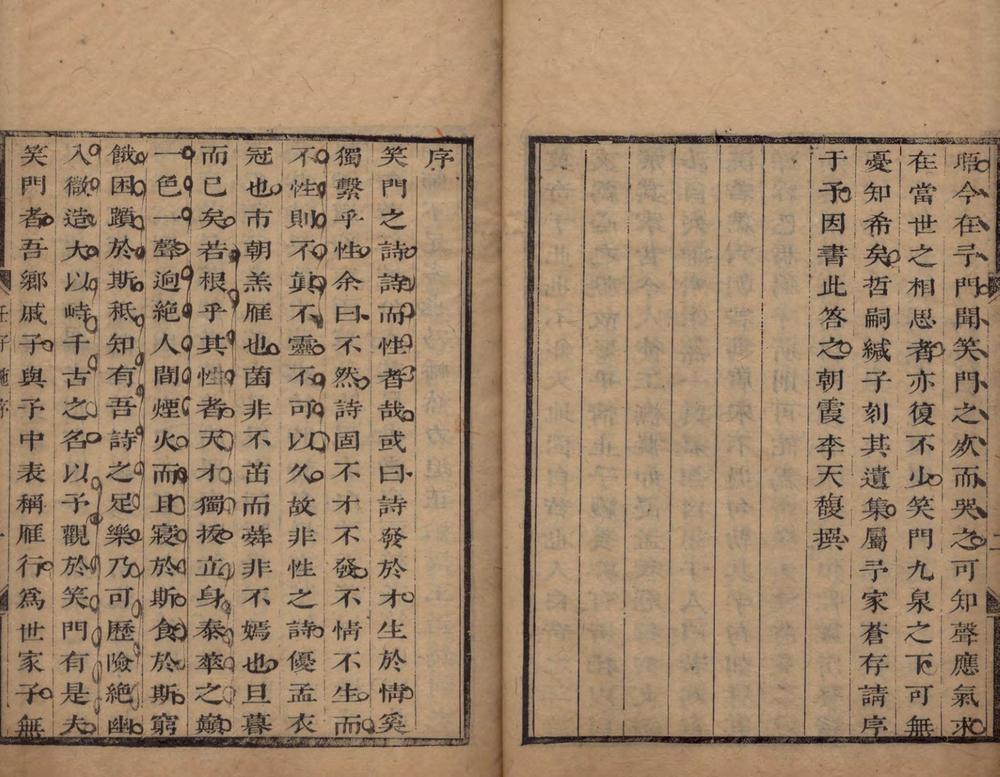 晤今在予門聞笑門之欬而哭之可知聲應氣求
在當世之相思者亦復不少笑門九泉之下可無
憂知希矣哲嗣緘子刻其遺集屬予家蒼存請序
于予因書此答之朝霞李天馥撰
序
笑門之詩詩而性者哉或曰詩發於才生於情奚
獨繫乎性余曰不然詩固不才不發不情不生而
不性則不眞不靈不可以久故非性之詩優孟衣
冠也市朝羔雁也菌非不茁而蕣非不嫣也旦暮
而已矣若根乎其性者天才獨拔立身泰華之巔
一色一聲逈絕人間煙火而且寢於斯食於斯窮
餓困躓於斯秪知有吾詩之足樂乃可歷險絕幽
入微造大以峙千古之名以予觀於笑門有是夫
笑門者吾鄉戚子與予中表稱雁行爲世家子無
序